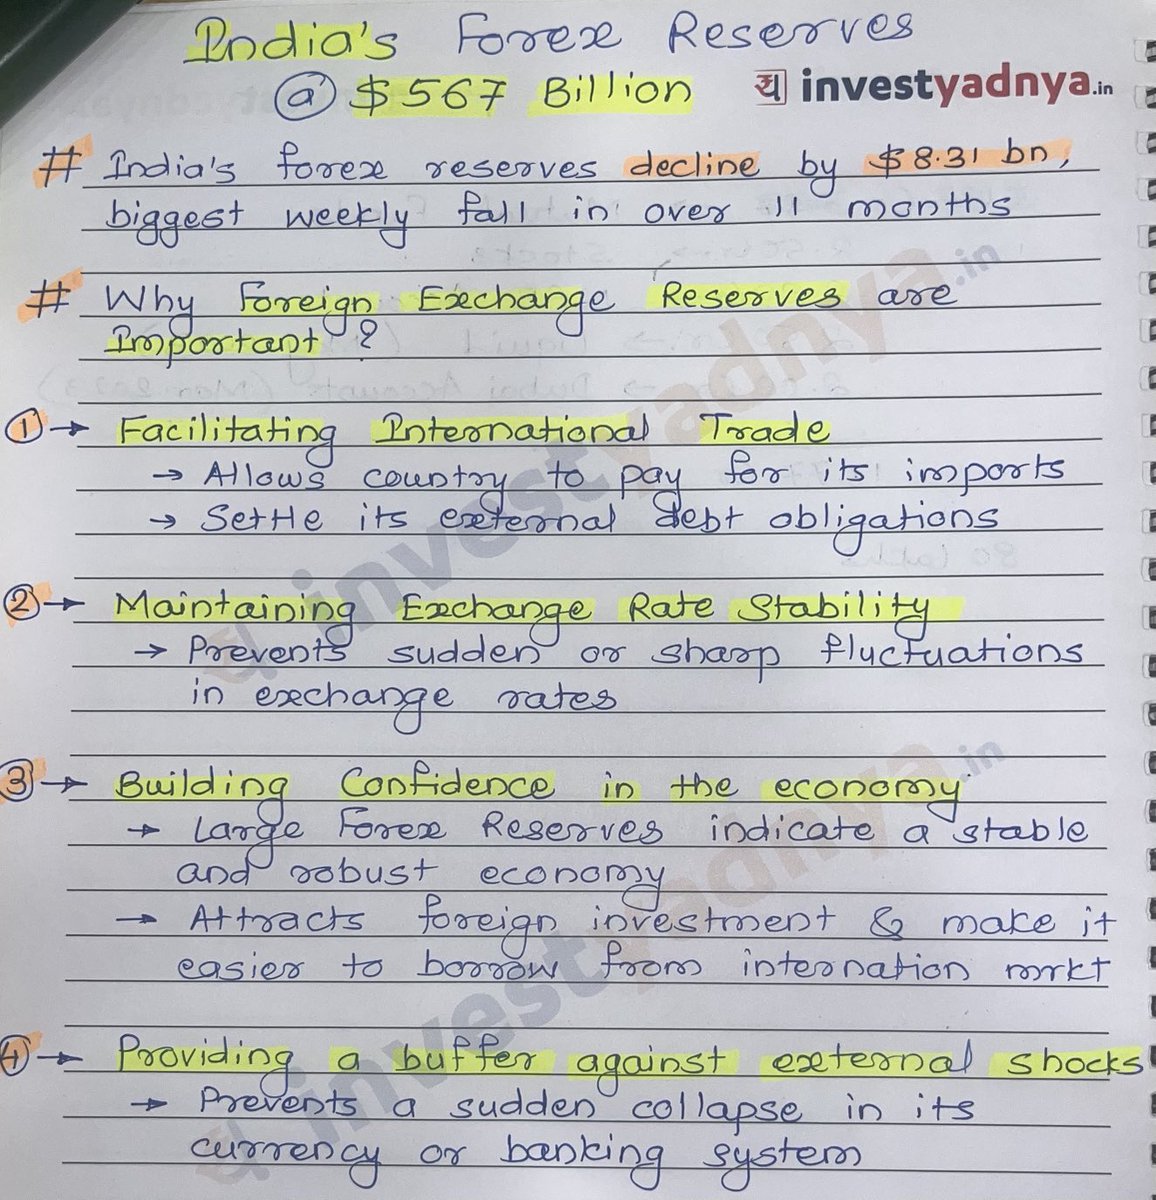 India's Forex Reserves
@ $567 Billion
य investyadnya.in
# India's forex reserves decline by $8.31 bn,
biggest weekly fall in over 11 months
# Why Foreign Exchange Reserves are
Important?
1 → Facilitating International Trade
→ Allows country to pay for its imports
→ Settle its external debt obligations
2 → Maintaining Exchange Rate Stability
→ Prevents sudden or sharp fluctuations
in exchange rates
3 → Building Confidence in the economy
→ Large Forex Reserves indicate a stable
and robust economy
→ Attracts foreign investment & make it
easier to borrow from internation mrkt
4 → Providing a buffer against external shocks
→ Prevents a sudden collapse in its
currency or banking system
investyadnya.in
investyadnya.in